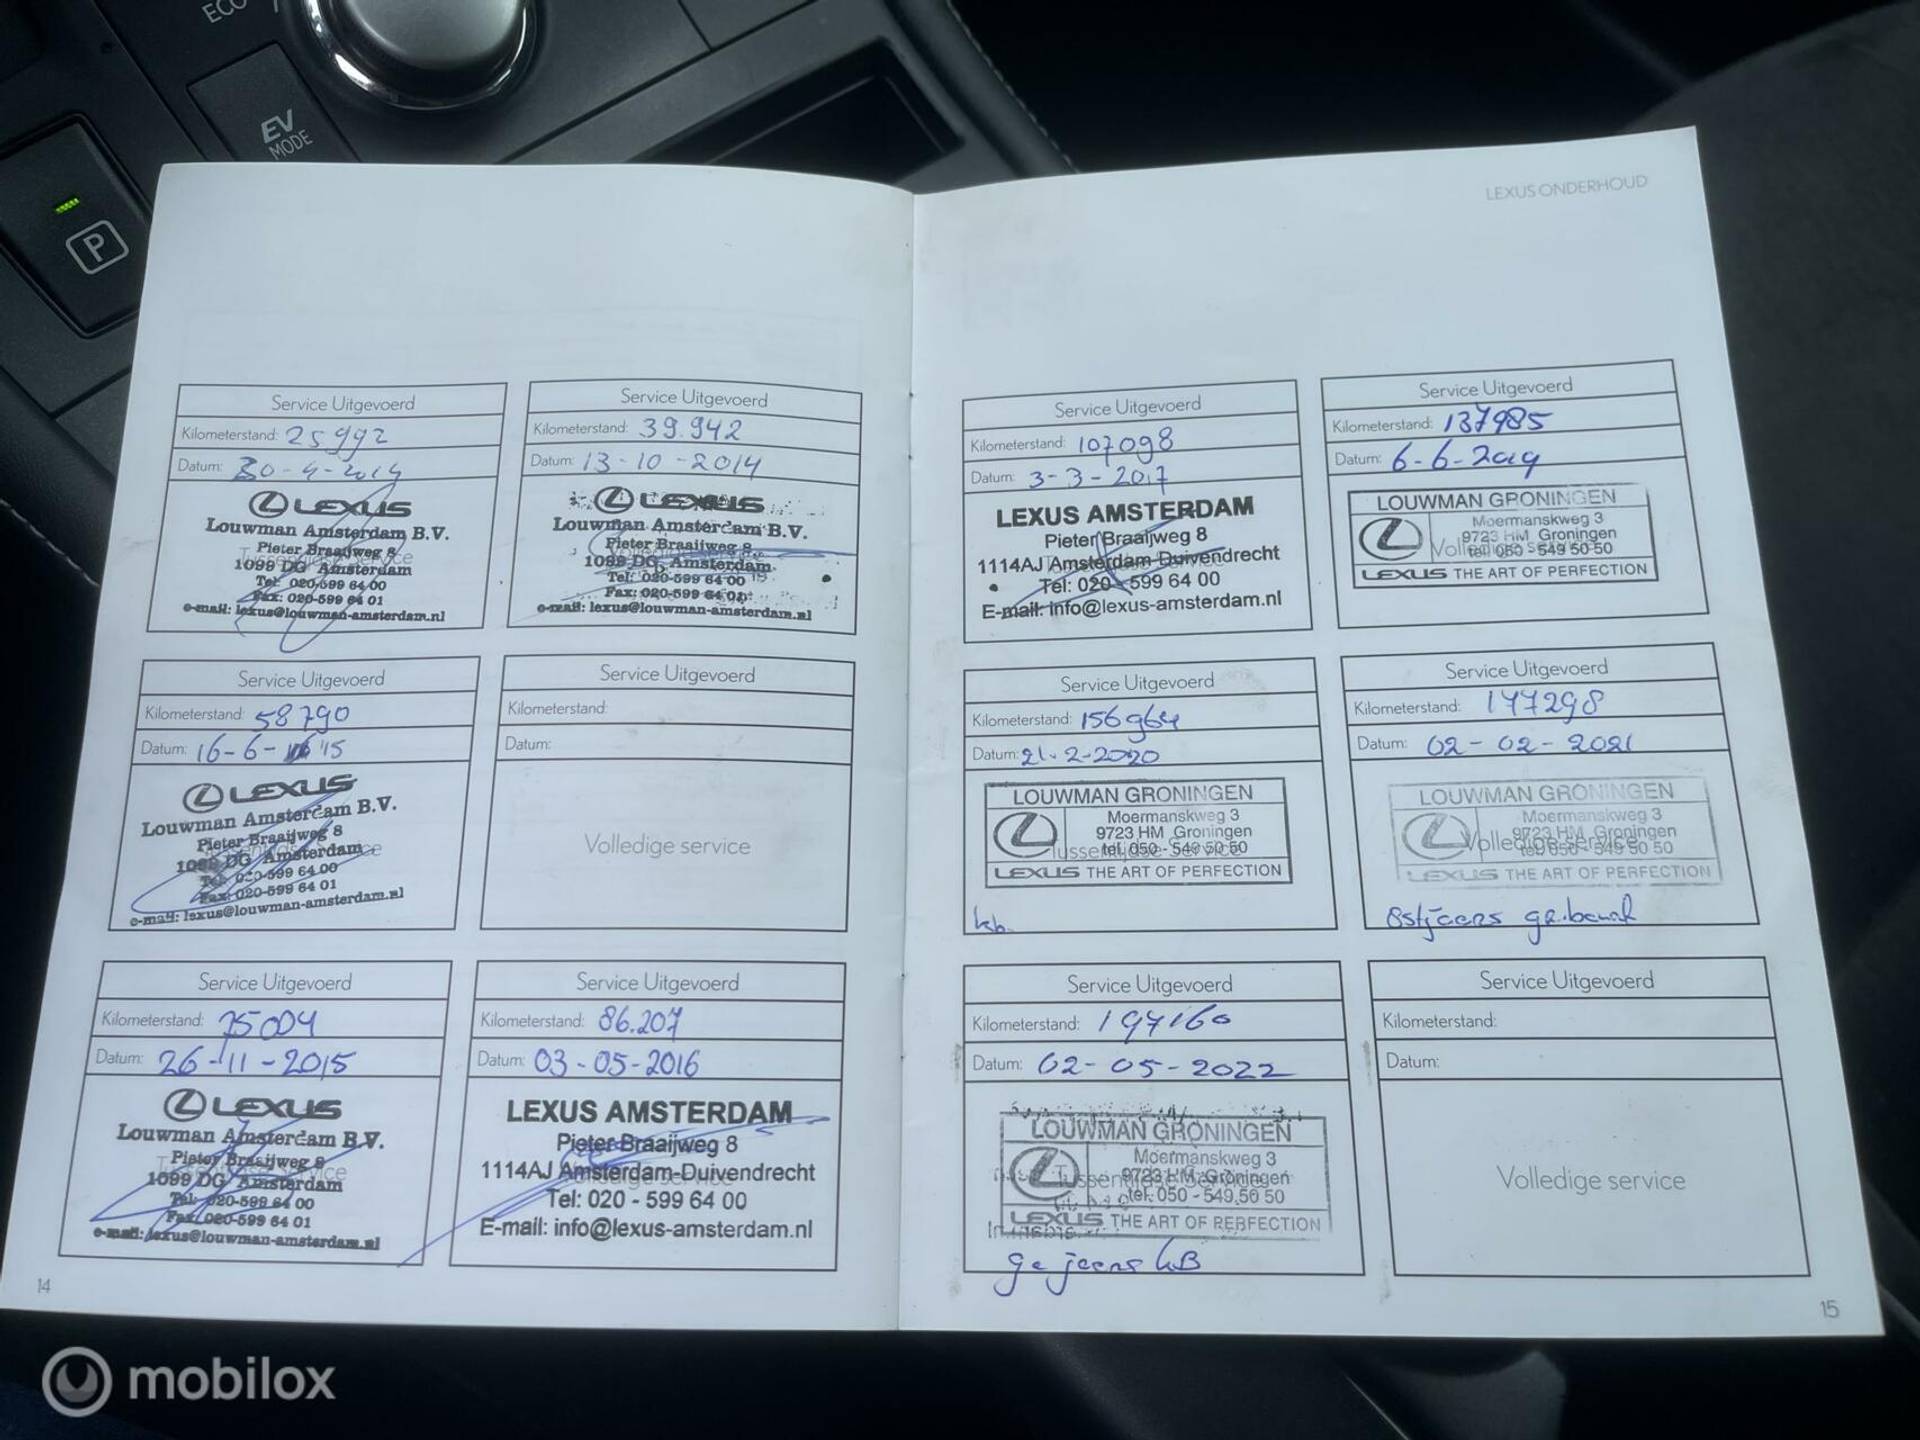 ECO
EV
MODE
P
LEXUS ONDERHOUD
Service Uitgevoerd
Kilometerstand: 25992
Datum: 30-4-2014
LEXUS
Louwman Amsterdam B.V.
Pieter Braaijweg 8
1099 DG Amsterdam
Tel: 020-599 64 00
Fax: 020-599 64 01
e-mail: lexus@louwman-amsterdam.nl
Service Uitgevoerd
Kilometerstand: 39.942
Datum: 13-10-2014
LEXUS
Louwman Amsterdam B.V.
Pieter Braaijweg 8
1099 DG Amsterdam
Tel: 020-599 64 00
Fax: 020-599 64 01
e-mail: lexus@louwman-amsterdam.nl
Service Uitgevoerd
Kilometerstand: 58790
Datum: 16-6-'15
LEXUS
Louwman Amsterdam B.V.
Pieter Braaijweg 8
1099 DG Amsterdam
Tel: 020-599 64 00
Fax: 020-599 64 01
e-mail: lexus@louwman-amsterdam.nl
Service Uitgevoerd
Kilometerstand:
Datum:
Volledige service
Service Uitgevoerd
Kilometerstand: 75004
Datum: 26-11-2015
LEXUS
Louwman Amsterdam B.V.
Pieter Braaijweg 8
1099 DG Amsterdam
Tel: 020-599 64 00
Fax: 020-599 64 01
e-mail: lexus@louwman-amsterdam.nl
Service Uitgevoerd
Kilometerstand: 86.207
Datum: 03-05-2016
LEXUS AMSTERDAM
Pieter Braaijweg 8
1114AJ Amsterdam-Duivendrecht
Tel: 020 - 599 64 00
E-mail: info@lexus-amsterdam.nl
14
Service Uitgevoerd
Kilometerstand: 107098
Datum: 3-3-2017
LEXUS AMSTERDAM
Pieter Braaijweg 8
1114AJ Amsterdam-Duivendrecht
Tel: 020 - 599 64 00
E-mail: info@lexus-amsterdam.nl
Service Uitgevoerd
Kilometerstand: 137985
Datum: 6-6-2019
LOUWMAN GRONINGEN
Moermanskweg 3
9723 HM Groningen
Volledige service
tel. 050 - 549 50 50
LEXUS THE ART OF PERFECTION
Service Uitgevoerd
Kilometerstand: 156964
Datum: 21-2-2020
LOUWMAN GRONINGEN
Moermanskweg 3
9723 HM Groningen
tel. 050 - 549 50 50
Tussentijdse Service
LEXUS THE ART OF PERFECTION
kb.
Service Uitgevoerd
Kilometerstand: 177298
Datum: 02-02-2021
LOUWMAN GRONINGEN
Moermanskweg 3
9723 HM Groningen
Volledige service
tel. 050 - 549 50 50
LEXUS THE ART OF PERFECTION
Service Uitgevoerd
Kilometerstand: 197160
Datum: 02-05-2022
LOUWMAN GRONINGEN
Moermanskweg 3
9723 HM Groningen
Tussentijdse Service
tel. 050 - 549 50 50
LEXUS THE ART OF PERFECTION
Service Uitgevoerd
Kilometerstand:
Datum:
Volledige service
15
mobilox